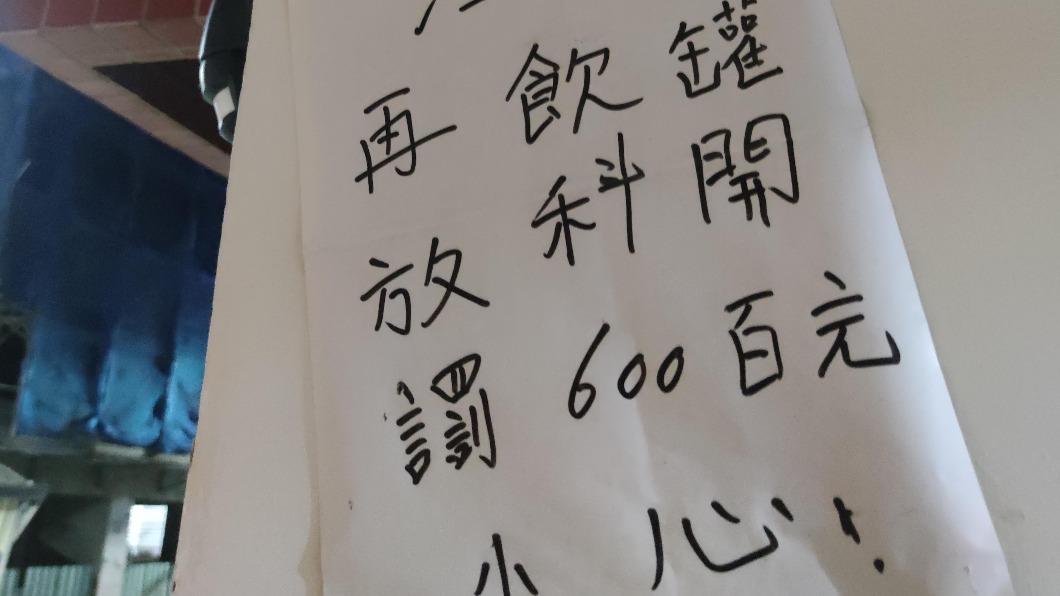 再飲罐
放科開
罰600百元
小心!